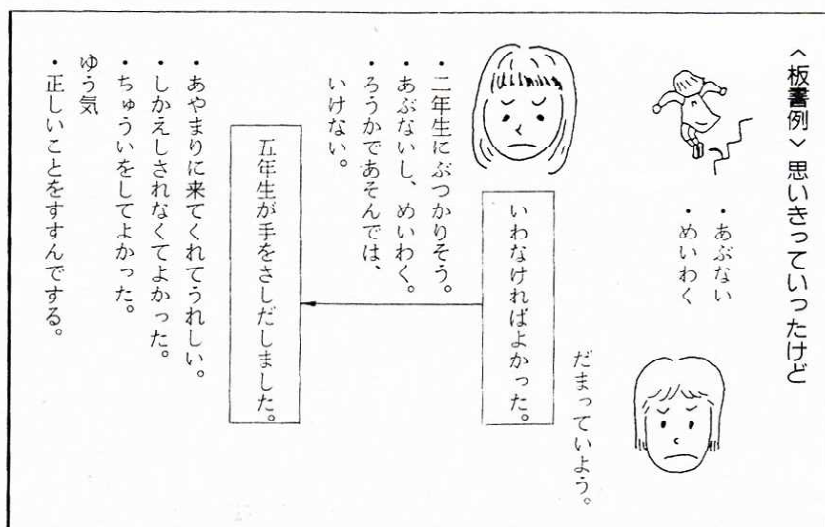 〈板書例〉思いきっていったけど
・あぶない
・めいわく
だまっていよう。
いわなければよかった。
・二年生にぶつかりそう。
・あぶないし、めいわく。
・ろうかであそんでは、
いけない。
五年生が手をさしだしました。
・あやまりに来てくれてうれしい。
・しかえしされなくてよかった。
・ちゅういをしてよかった。
ゆう気
・正しいことをすすんでする。